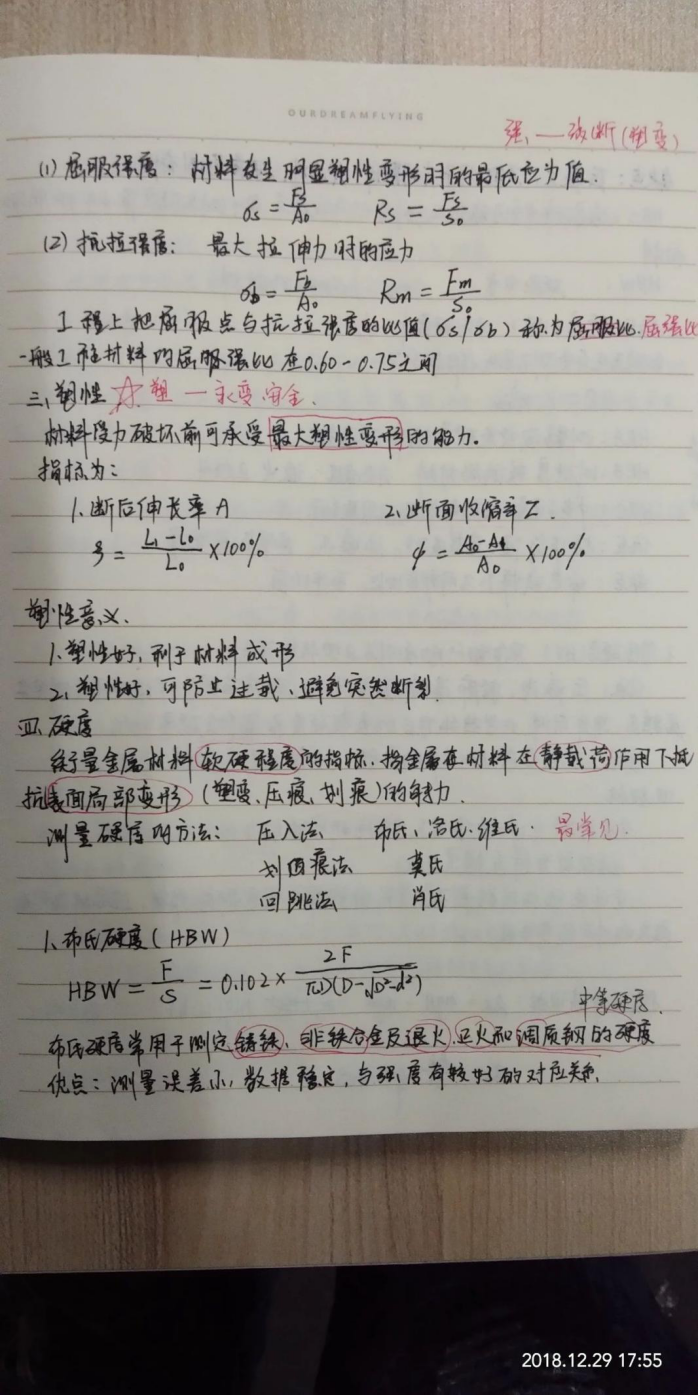 OURDREAMFLYING
强 — 破断(塑变)
(1) 屈服强度: 材料发生明显塑性变形时的最低应力值.
σs = Fs/A₀ Rs = Fs/S₀
(2) 抗拉强度: 最大拉伸力时的应力
σb = Fb/A₀ Rm = Fm/S₀
工程上把屈服点与抗拉强度的比值(σs/σb)称为屈服比.屈强比
一般工程材料的屈服强比在0.60-0.75之间
三、塑性 ☆ 塑 — 永变、安全.
材料受力破坏前可承受最大塑性变形的能力。
指标为:
1、断后伸长率 A 2、断面收缩率 Z.
δ = (L₁-L₀)/L₀ ×100% ψ = (A₀-A₁)/A₀ ×100%
塑性意义.
1、塑性好,利于材料成形
2、塑性好,可防止过载、避免突然断裂.
四、硬度
衡量金属材料软硬程度的指标.指金属在材料在静载荷作用下抵
抗表面局部变形(塑变、压痕、划痕)的能力.
测量硬度的方法: 压入法 布氏、洛氏、维氏. 最常见.
划痕法 莫氏
回跳法 肖氏
1、布氏硬度(HBW)
HBW = F/S = 0.102× 2F/(πD(D-√(D²-d²)))
中等硬度.
布氏硬度常用于测定铸铁、非铁合金及退火.正火和调质钢的硬度
优点:测量误差小,数据稳定,与强度有较好的对应关系.
2018.12.29 17:55